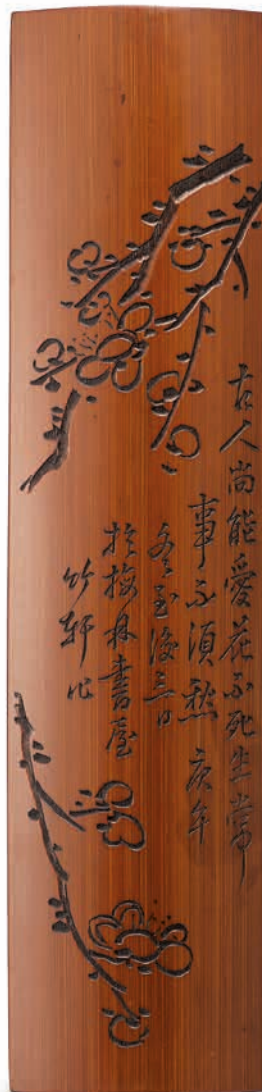 古人尚能愛花不死生常
事不須愁 庚午
冬至後三日
於梅林書屋
竹軒作